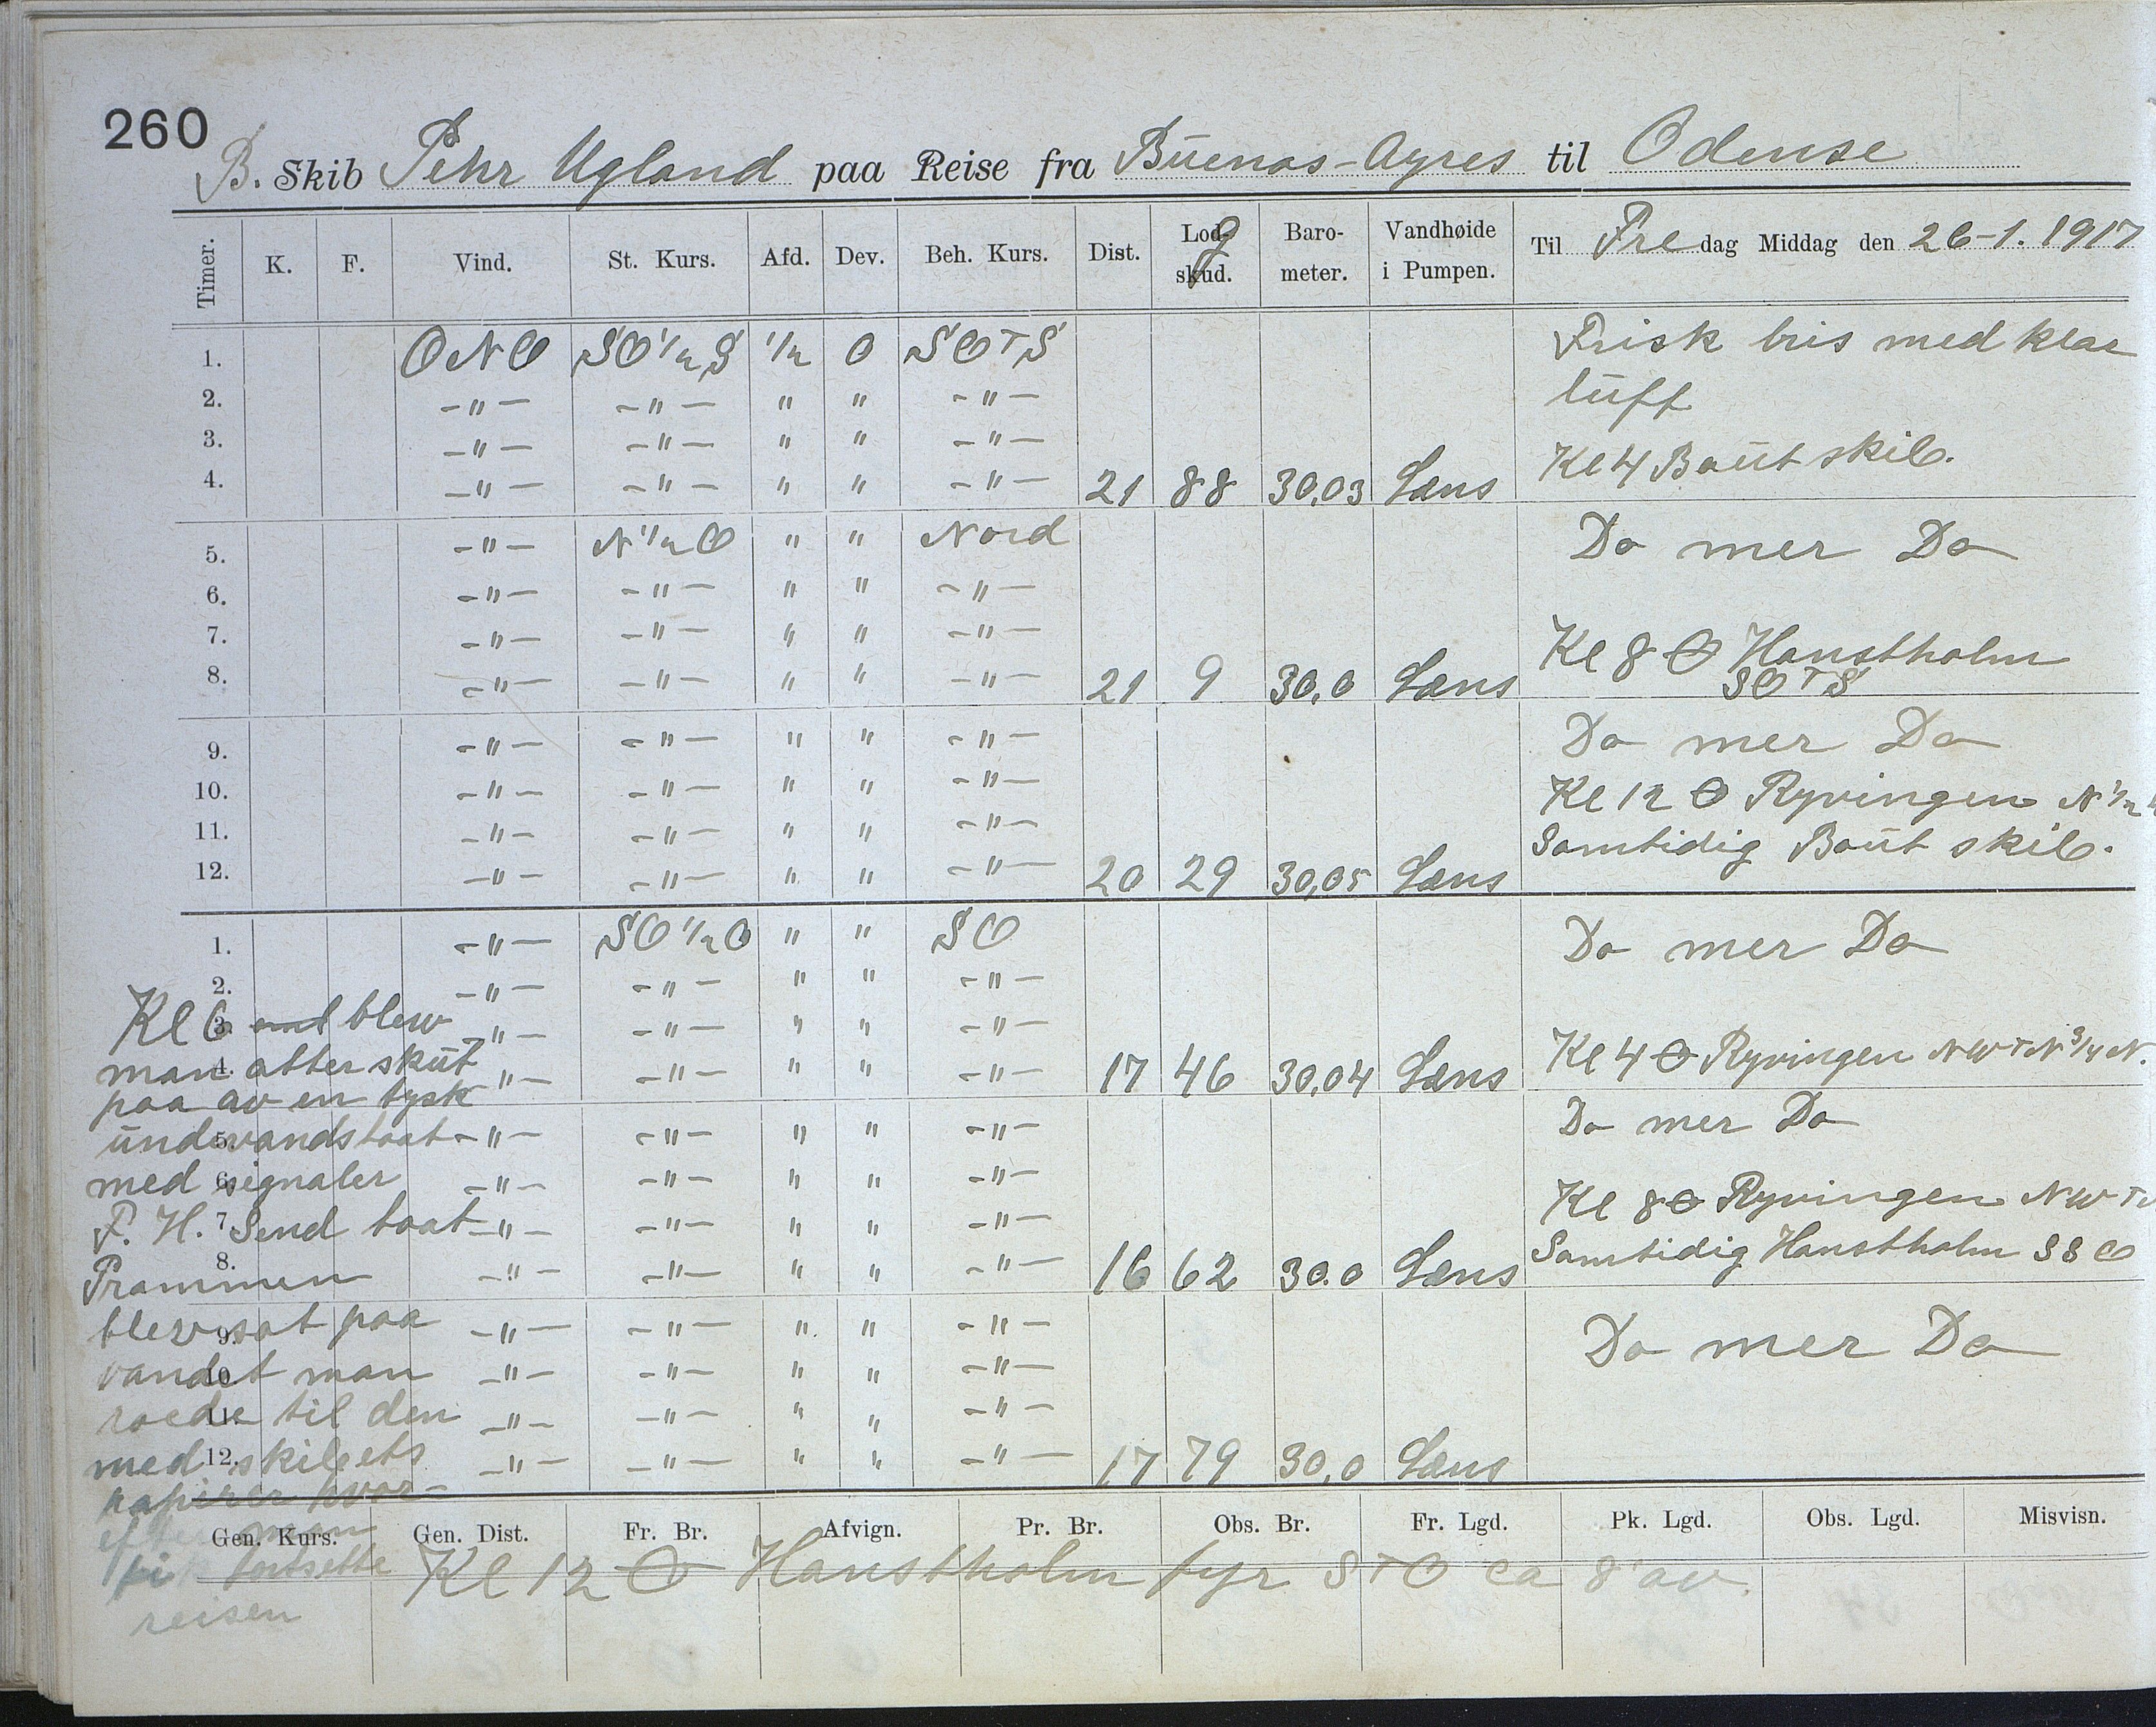 260
B. Skib Pehr Ugland paa Reise fra Buenos-Ayres til Odense
Timer. K. F. Vind. St. Kurs. Afd. Dev. Beh. Kurs. Dist. Lod-skud. g Baro-meter. Vandhøide i Pumpen. Til Fredag Middag den 26-1.1917
1. ONO SO 1/2 S 1/2 0 SOTS Frisk bris med klar
2. -"- -"- " " -"- luft
3. -"- -"- " " -"-
4. -"- -"- " " -"- 21 88 30,03 Læns Kl 4 Baut skib.
5. -"- N 1/2 O " " Nord Do mer Do
6. -"- -"- " " -"-
7. -"- -"- " " -"- Kl 8 Hanstholm
8. -"- -"- " " -"- 21 9 30,0 Læns SOTS
9. -"- -"- " " -"- Do mer Do
10. -"- -"- " " -"- Kl 12 Ryvingen N 1/2
11. -"- -"- " " -"- Samtidig Baut skib.
12. -"- -"- " " -"- 20 29 30,05 Læns
1. -"- SO 1/2 O " " SO Do mer Do
2. -"- -"- " " -"-
3. -"- -"- " " -"-
4. -"- -"- " " -"- 17 46 30,04 Læns Kl 4 Ryvingen NWTN 3/4 N.
5. -"- -"- " " -"- Do mer Do
6. -"- -"- " " -"-
7. -"- -"- " " -"- Kl 8 Ryvingen NWT
8. -"- -"- " " -"- 16 62 30.0 Læns Samtidig Hanstholm SSO
9. -"- -"- " " -"- Do mer Do
10. -"- -"- " " -"-
11. -"- -"- " " -"-
12. -"- -"- " " -"- 17 79 30,0 Læns
Kl 6 blew
man atter skut
paa av en tysk
undervandsbaat
med signaler
F. H. Send baat
Prammen
blew sat paa
vandet man
roede til den
med skibets
papirer hvor-
efter man
fik fortsette
reisen
Gen. Kurs. Gen. Dist. Fr. Br. Afvign. Pr. Br. Obs. Br. Fr. Lgd. Pk. Lgd. Obs. Lgd. Misvisn.
Kl 12 Hanstholm fyr STO ca 8' av.